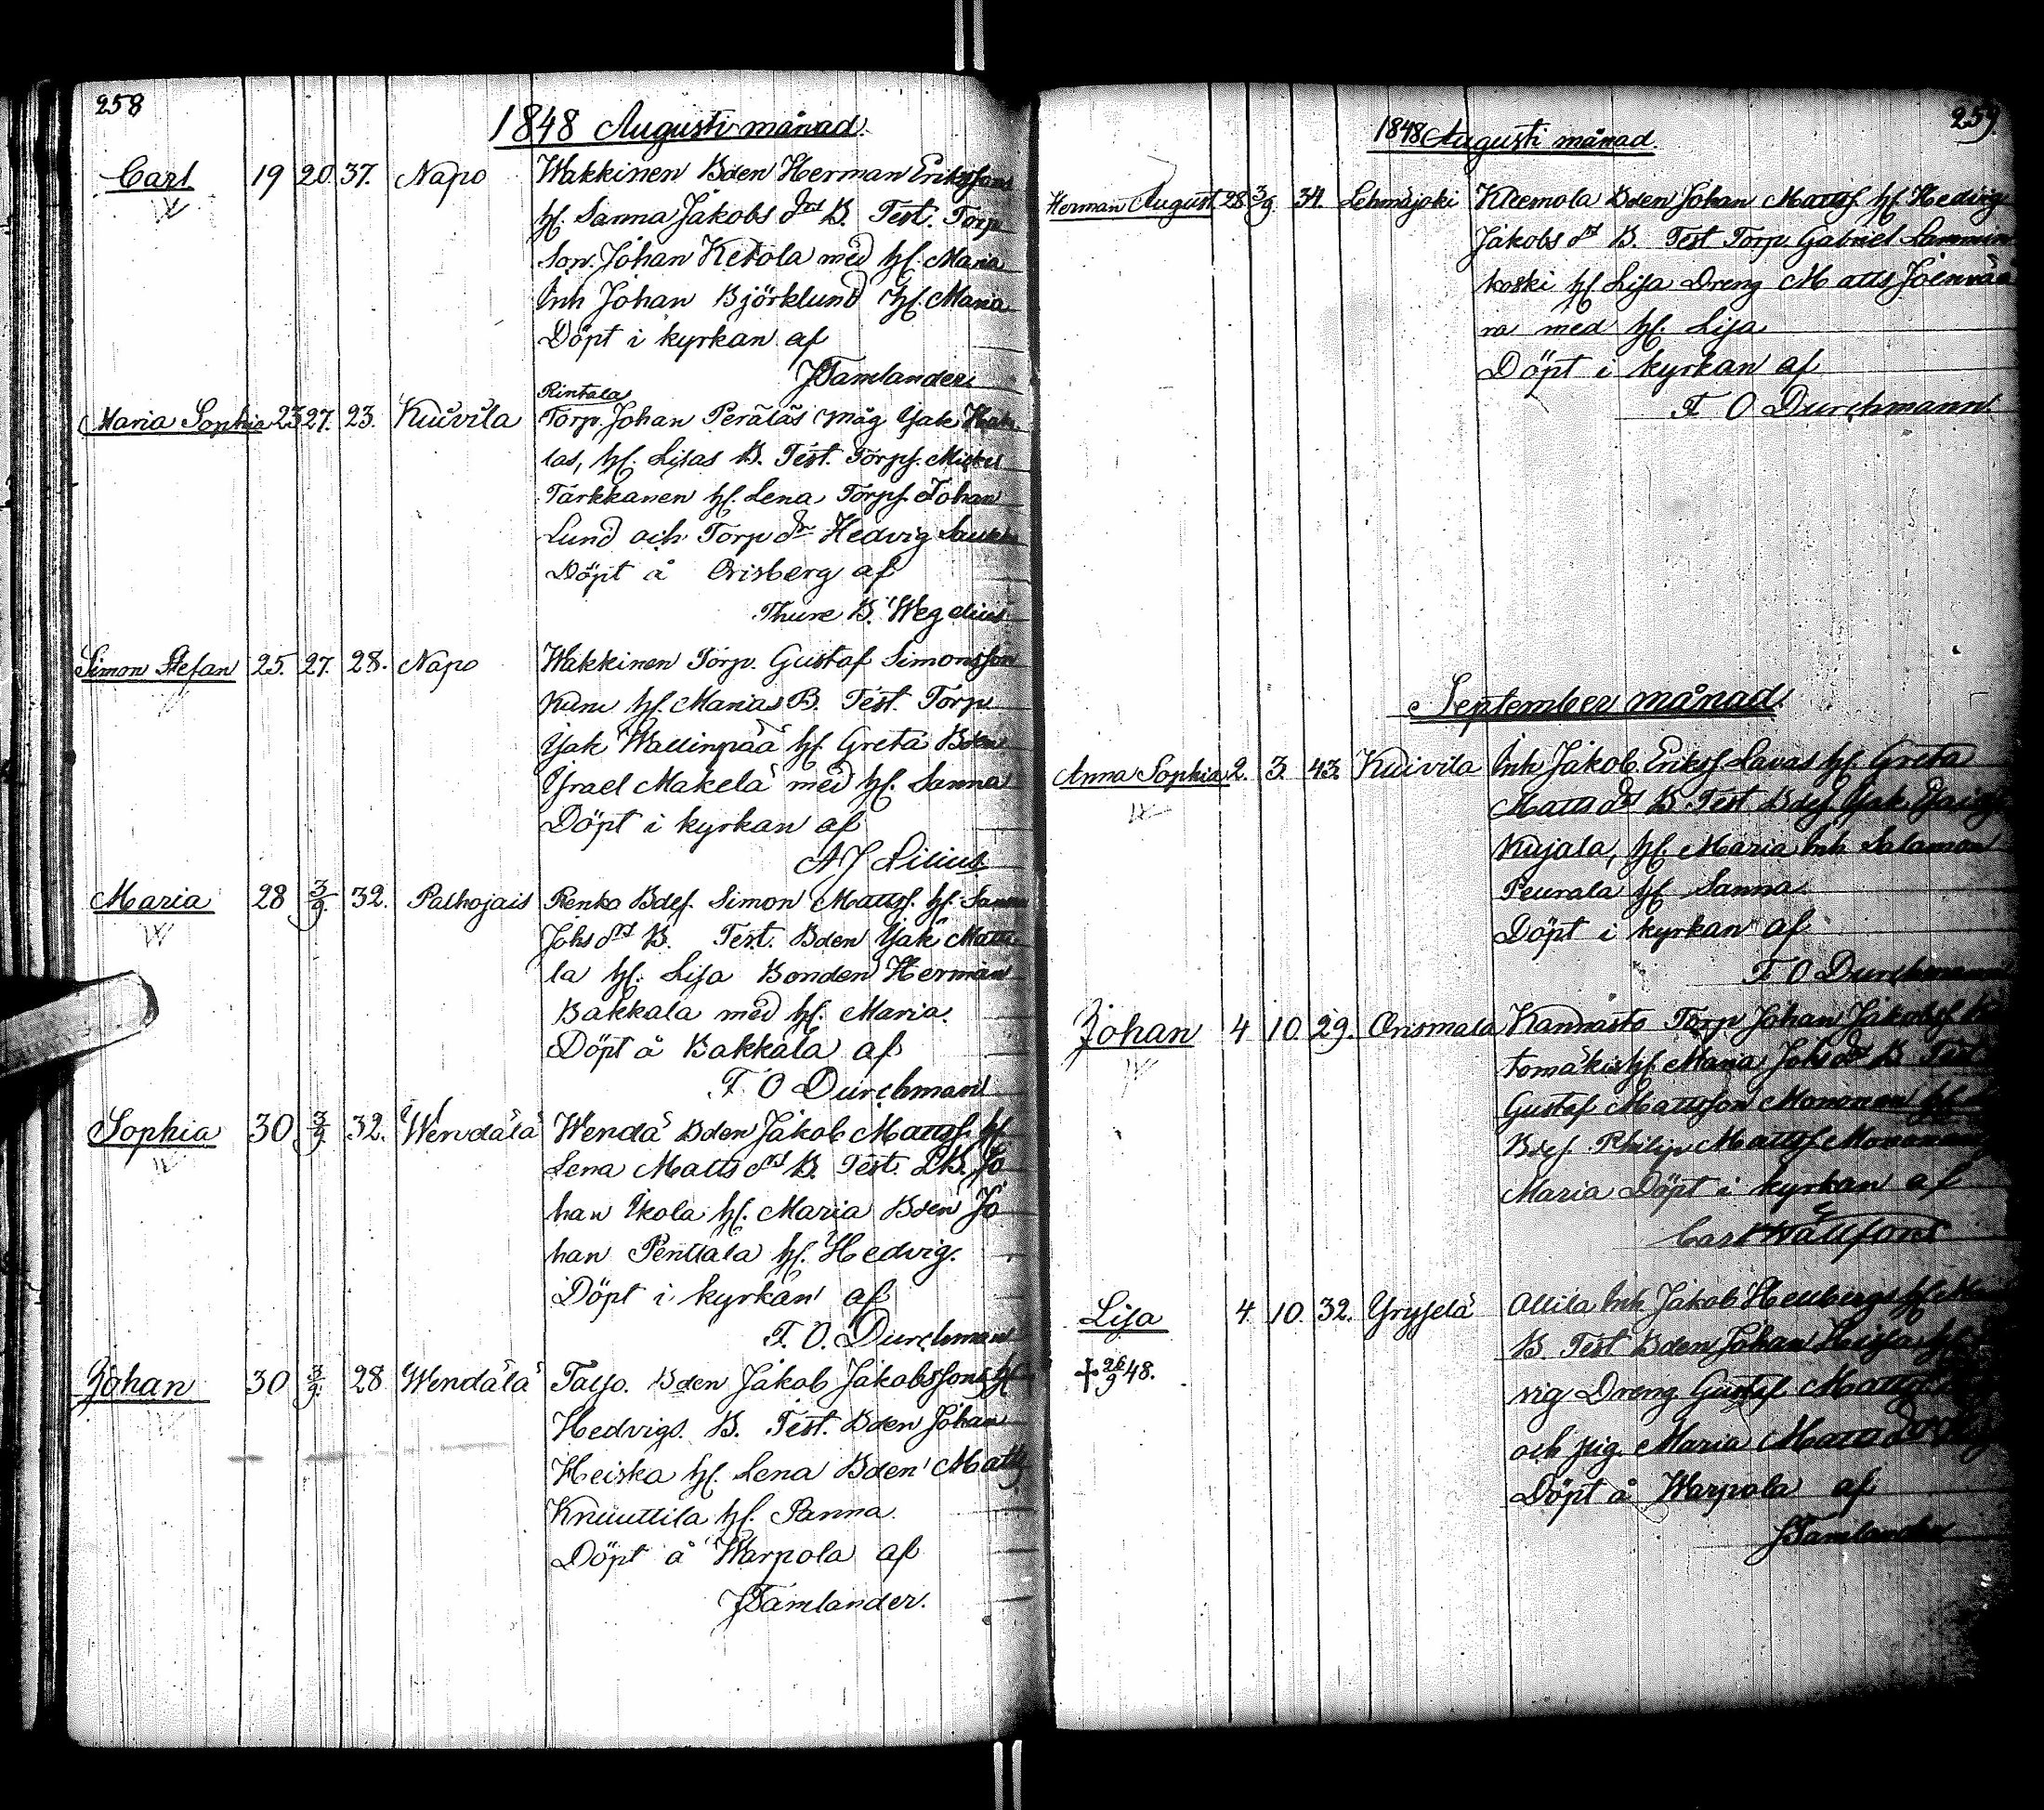 258
1848 Augusti månad.
Carl 19 20. 37. Napo Wakkinen Bden Herman Erikssons
hf. Sanna Jakobs drs B. Test. Torp
Son. Johan Ketola med hf. Maria
Inh Johan Björklund hf. Maria
Döpt i kyrkan af
JTamlander.
Rintala
Maria Sophia 23 27. 23. Kuivila Torp. Johan Peräläs måg Jak
las, hf. Lisas B. Test. Torpf. Mickel
Tarkkanen hf. Lena Torpf. Johan
Lund och Torp dr Hedvig
Döpt å Orisberg af
Thure B. Wegelius
Simon Stefan 25. 27. 28. Napo Wakkinen Torp. Gustaf Simonsson
hf. Marias B. Test. Torp
Jak Wallinpää hf. Greta Bden
Israel Makelä med hf. Sanna
Döpt i kyrkan af
A J Lilius
Maria 28 3/9. 32. Palhojais Renko Bdef. Simon Mattsf. hf. Sanna
Johs drs B. Test. Bden Jak Matti
la hf. Lisa Bonden Herman
Bakkala med hf. Maria.
Döpt å Bakkala af
F O Durchman
Sophia 30 3/9 32. Wendälä Wendä Bden Jakob Mattsf. hf.
Lena Matts drs B. Test. Jo
han Ikola hf. Maria Bden Jo
han Penttala hf. Hedvig.
Döpt i kyrkan af
F. O. Durchman
Johan 30 3/9. 28 Wendälä Bden Jakob Jakobssons hf
Hedvigs B. Test. Bden Johan
Heiska hf. Lena Bden Matts
Knuuttila hf. Sanna.
Döpt å Warpola af
JTamlander.
259.
1848 Augusti månad.
Herman August. 28 3/9. 34. Lehmäjoki Kleemola Bden Johan Mattsf. hf. Hedvig
Jakobs drs B. Test Torp. Gabriel Lammin
koski hf. Lisa Dreng Matts Joenvaa
ra med hf. Lisa
Döpt i kyrkan af
F O Durchmann.
September månad.
Anna Sophia 2. 3. 43. Kuivila Inh Jakob Eriksf Lavas hf. Greta
Matts drs B. Test Bdef. Jak
Kujala, hf. Maria Inh Salamon
Peurala hf Sanna.
Döpt i kyrkan af
F O Durchmann
Johan 4 10. 29. Orismala Kannasto Torp Johan Jakobsf
tomäkis hf. Maria Johs dr B. Test
Gustaf Mattsson Mononen hf.
Bdef. Philip Mattsf Mononen
Maria Döpt i kyrkan af
Carl Wällfors
Lisa 4. 10. 32. Yryselä Ollila Inh Jakob Hellbergs hf
B. Test Bden Johan
vig Dreng Gustaf Matts
och pig. Maria Matts
Döpt å Warpola af
JTamlander
+ 26/9 48.